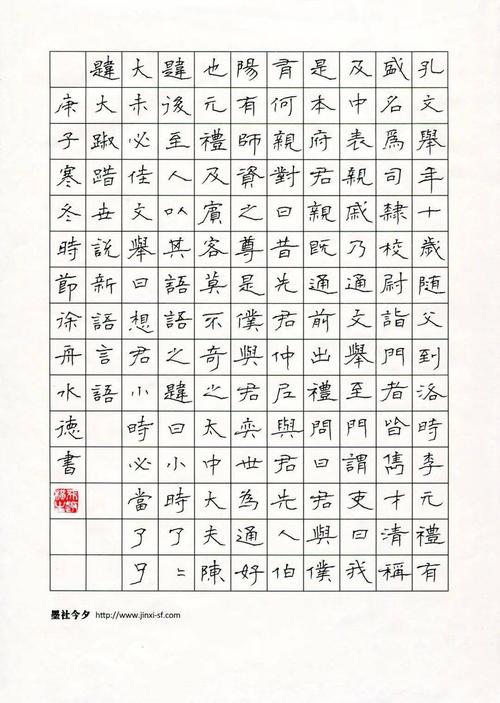 孔文舉年十歲隨父到洛時李元禮有
盛名爲司隸校尉詣門者皆儁才清稱
及中表親戚乃通文舉至門謂吏曰我
是本府君親既通前出禮問曰君與僕
有何親對曰昔先君仲尼與君先人伯
陽有師資之尊是僕與君奕世為通好
也元禮及賓客莫不奇之太中大夫陳
韙後至人以其語語之韙曰小時了〻
大未必佳文舉曰想君小時必當了了
韙大踧踖世說新語言語
庚子寒冬時節徐舟水德書
墨社今夕 http://www.jinxi-sf.com